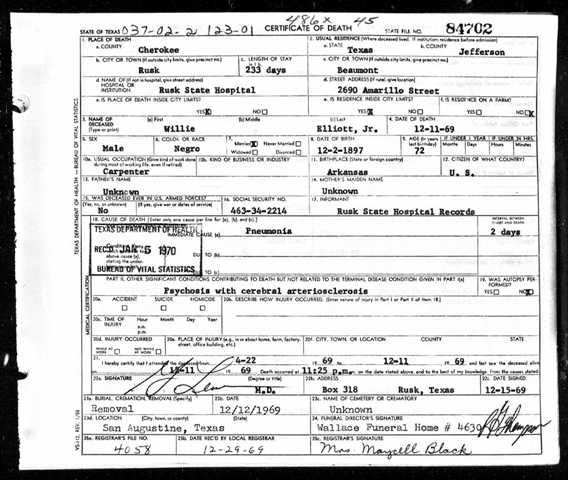 486x 45
STATE OF TEXAS 037-02-2 123-01 CERTIFICATE OF DEATH STATE FILE NO. 84702
1. PLACE OF DEATH 2. USUAL RESIDENCE (Where deceased lived. If institution: residence before admission)
a. COUNTY Cherokee a. STATE Texas b. COUNTY Jefferson
b. CITY OR TOWN (If outside city limits, give precinct no.) Rusk c. LENGTH OF STAY 233 days c. CITY OR TOWN (If outside city limits, give precinct no.) Beaumont
d. NAME OF (If not in hospital, give street address) HOSPITAL OR INSTITUTION Rusk State Hospital d. STREET ADDRESS (If rural, give location) 2690 Amarillo Street
e. IS PLACE OF DEATH INSIDE CITY LIMITS? YES NO e. IS RESIDENCE INSIDE CITY LIMITS? YES NO f. IS RESIDENCE ON A FARM? YES NO
3. NAME OF DECEASED (Type or print) (a) First Willie (b) Middle (c) Last Elliott, Jr. 4. DATE OF DEATH 12-11-69
5. SEX Male 6. COLOR OR RACE Negro 7. Married Never Married Widowed Divorced 8. DATE OF BIRTH 12-2-1897 9. AGE (In years last birthday) 72 IF UNDER 1 YEAR Months Days IF UNDER 24 HRS. Hours Min.
10a. USUAL OCCUPATION (Give kind of work done during most of working life, even if retired) Carpenter 10b. KIND OF BUSINESS OR INDUSTRY 11. BIRTHPLACE (State or foreign country) Arkansas 12. CITIZEN OF WHAT COUNTRY? U. S.
13. FATHER'S NAME Unknown 14. MOTHER'S MAIDEN NAME Unknown
15. WAS DECEASED EVER IN U.S. ARMED FORCES? (Yes, no, or unknown) (If yes, give war or dates of service) No 16. SOCIAL SECURITY NO. 463-34-2214 17. INFORMANT Rusk State Hospital Records
18. CAUSE OF DEATH [Enter only one cause per line for (a), (b), and (c).] INTERVAL BETWEEN ONSET AND DEATH
TEXAS DEPARTMENT OF HEALTH IMMEDIATE CAUSE (a) Pneumonia 2 days
REC'D JAN 5 1970 DUE TO (b)
above cause (a), stating the under-
BUREAU OF VITAL STATISTICS DUE TO (c)
PART II. OTHER SIGNIFICANT CONDITIONS CONTRIBUTING TO DEATH BUT NOT RELATED TO THE TERMINAL DISEASE CONDITION GIVEN IN PART I(a) 19. WAS AUTOPSY PERFORMED? YES NO
Psychosis with cerebral arteriosclerosis
20a. ACCIDENT SUICIDE HOMICIDE 20b. DESCRIBE HOW INJURY OCCURRED. (Enter nature of injury in Part I or Part II of item 18.)
20c. TIME OF INJURY Hour Month Day Year a.m. p.m.
20d. INJURY OCCURRED WHILE AT WORK NOT WHILE AT WORK 20e. PLACE OF INJURY (e.g., in or about home, farm, factory, street, office building, etc.) 20f. CITY, TOWN, OR LOCATION COUNTY STATE
21. I hereby certify that I attended the deceased from 4-22 1969 to 12-11 1969 and last saw the deceased alive
on 12-11 1969 Death occurred at 11:25 p.m., on the date stated above, and to the best of my knowledge, from the causes stated.
22a. SIGNATURE (Degree or title) M.D. 22b. ADDRESS Box 318 Rusk, Texas 22c. DATE SIGNED 12-15-69
23a. BURIAL, CREMATION, REMOVAL (Specify) Removal 23b. DATE 12/12/1969 23c. NAME OF CEMETERY OR CREMATORY Unknown
23d. LOCATION (City, town, or county) (State) San Augustine, Texas 24. FUNERAL DIRECTOR'S SIGNATURE Wallace Funeral Home # 4639
25a. REGISTRAR'S FILE NO. 4058 25b. DATE REC'D BY LOCAL REGISTRAR 12-29-69 25c. REGISTRAR'S SIGNATURE Mrs. Maycell Black
TEXAS DEPARTMENT OF HEALTH — BUREAU OF VITAL STATISTICS
MEDICAL CERTIFICATION